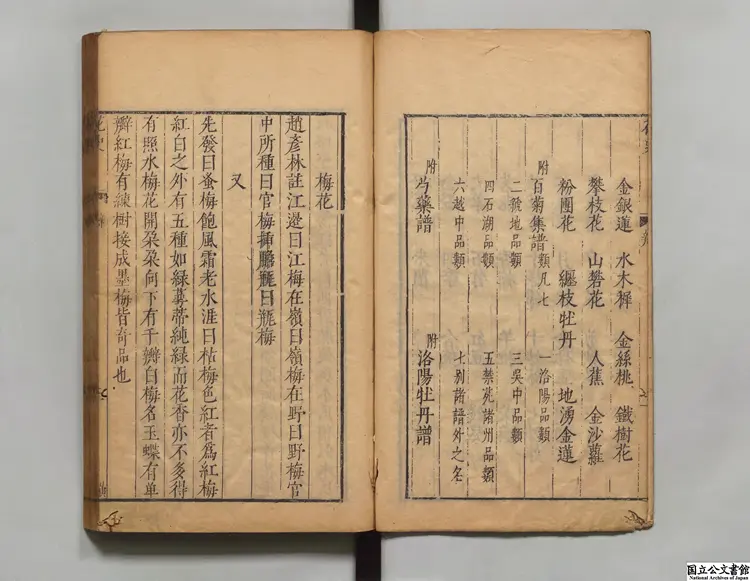 金銀蓮 水木樨 金絲桃 鐵樹花
攀枝花 山礬花 人蕉 金沙蘿
粉團花 纏枝牡丹 地湧金蓮
附百菊集譜類凡七 一洛陽品類
二虢地品類 三吳中品類
四石湖品類 五禁苑諸州品類
六越中品類 七別諸譜外之名
附芍藥譜 附洛陽牡丹譜
梅花
趙彥林註江邊曰江梅在嶺曰嶺梅在野曰野梅官
中所種曰官梅揷膽甁曰瓶梅
又
先發曰蚤梅飽風霜老水涯曰枯梅色紅者爲紅梅
紅白之外有五種如綠蕚蒂純綠而花香亦不多得
有照水梅花開朶朶向下有千瓣白梅名玉蝶有单
瓣紅梅有練樹接成墨梅皆奇品也
花史
国立公文書館
National Archives of Japan